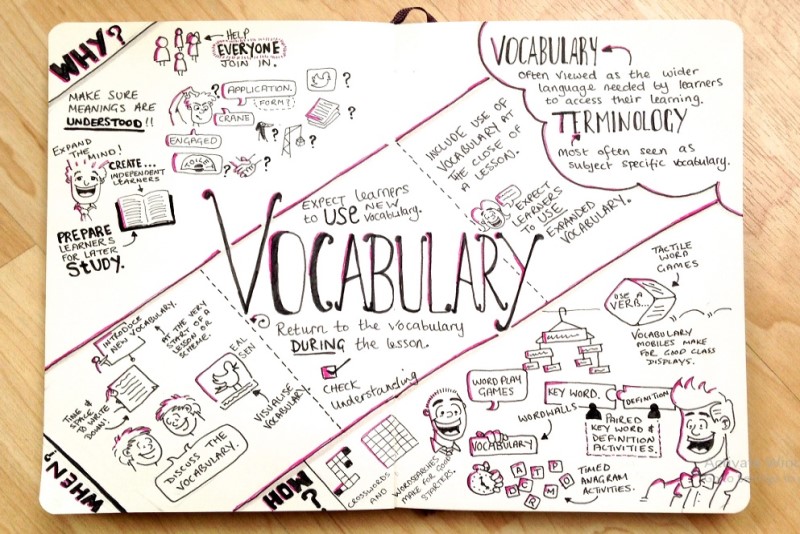 WHY?
HELP
EVERYONE
JOIN IN.
MAKE SURE
MEANINGS ARE
UNDERSTOOD!!
APPLICATION.
FORM?
CRANE
ENGAGED
TOILET
EXPAND
THE MIND!
CREATE...
INDEPENDENT
LEARNERS
PREPARE
LEARNERS
FOR LATER
STUDY.
VOCABULARY
Often viewed as the wider
language needed by learners
to access their learning.
TERMINOLOGY
Most often seen as
subject specific vocabulary.
INCLUDE USE OF
VOCABULARY AT
THE CLOSE OF
A LESSON.
EXPECT
LEARNERS
TO USE
EXPANDED
VOCABULARY.
EXPECT learners
to USE NEW
vocabulary.
VOCABULARY
Return to the vocabulary
DURING the lesson.
CHECK
Understanding
INTRODUCE
NEW VOCABULARY.
AT THE VERY
START OF A
LESSON OR
SCHEME.
TIME &
SPACE
TO WRITE
DOWN!
EAL
SEN
VISUALISE
VOCABULARY
DISCUSS THE
VOCABULARY.
WHEN?
HOW?
CROSSWORDS
AND
WORDSEARCHES
MAKE FOR GOOD
STARTERS.
WORD PLAY
GAMES
WORDWALLS
VOCABULARY
A T P
D C R M O
TIMED
ANAGRAM
ACTIVITIES.
KEY WORD.
DEFINITION
PAIRED
KEY WORD &
DEFINITION
ACTIVITIES.
TACTILE
WORD
GAMES
USE A
VERB...
VOCABULARY
MOBILES MAKE
FOR GOOD CLASS
DISPLAYS.